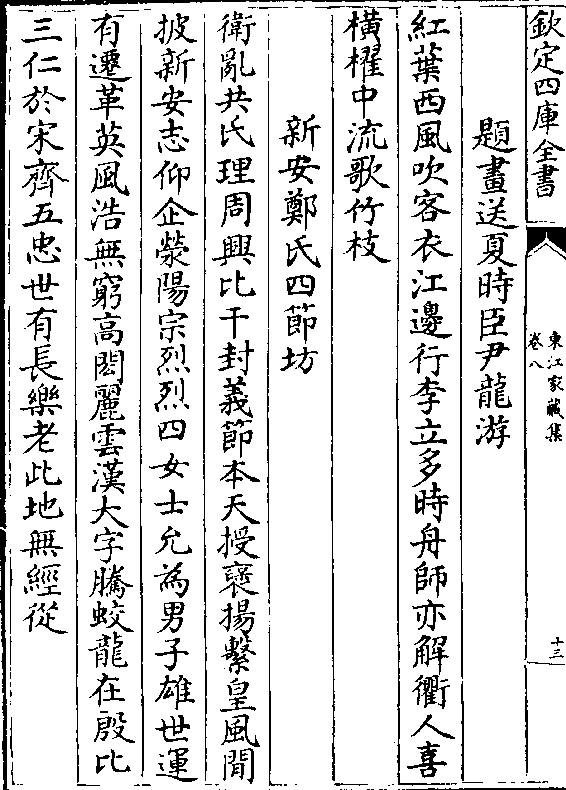 欽定四庫全書
東江家藏集
卷八
十三
題畫送夏時臣尹龍游
紅葉西風吹客衣江邊行李立多時舟師亦解衢人喜
橫櫂中流歌竹枝
新安鄭氏四節坊
衛亂共氏理周興比干封義節本天授褒揚繫皇風間
披新安志仰企滎陽宗烈烈四女士允為男子雄世運
有遷革英風浩無窮高閎麗雲漢大字騰蛟龍在殷比
三仁於宋齊五忠世有長樂老此地無經從